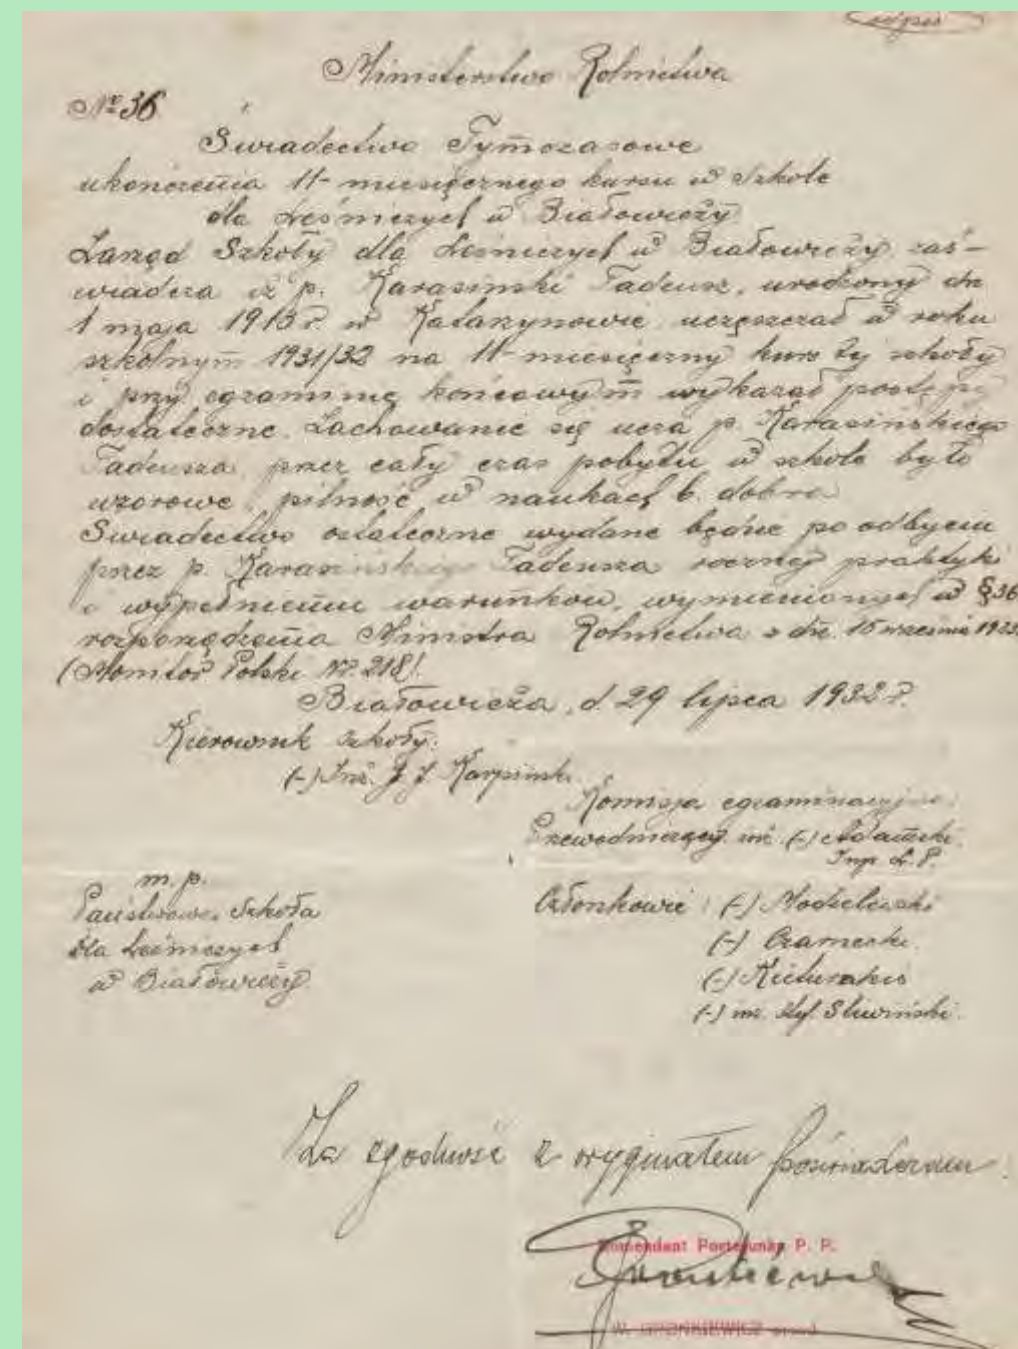 Odpis
Ministerstwo Rolnictwa
№ 36
Świadectwo Tymczasowe
ukończenia 11-miesięcznego kursu w Szkole
dla Leśniczych w Białowieży
Zarząd Szkoły dla Leśniczych w Białowieży zaś-
wiadcza iż p. Karasinski Tadeusz, urodzony dn
1 maja 1913 r. w Katarzynowie uczęszczał w roku
szkolnym 1931/32 na 11-miesięczny kurs tej szkoły
i przy egzaminie końcowym wykazał postępy
dostateczne. Zachowanie się ucza p. Karasińskiego
Tadeusza przez cały czas pobytu w szkole było
wzorowe, pilność w naukach b. dobra
Świadectwo ostateczne wydane będzie po odbyciu
przez p. Karasinskiego Tadeusza rocznej praktyki
i wypełnieniu warunków, wymienionych w § 36
rozporządzenia Ministra Rolnictwa z dn. 15 września
(Monitor Polski № 218).
Białowieża, d. 29 lipca 1932 r.
Kierownik szkoły:
(-) Inż. J J Karpinski
Komisja egzaminacyjna:
Przewodniczący inż. (-) Adamski
Insp. L. P.
m. p.
Państwowa Szkoła
dla Leśniczych
w Białowieży
Członkowie: (-) Modzelewski
(-) Czarnecki
(-)
(-) inż. Sliwiński.
Za zgodność z oryginałem poświadczam
Komendant Posterunku P. P.
W. GRONKIEWICZ